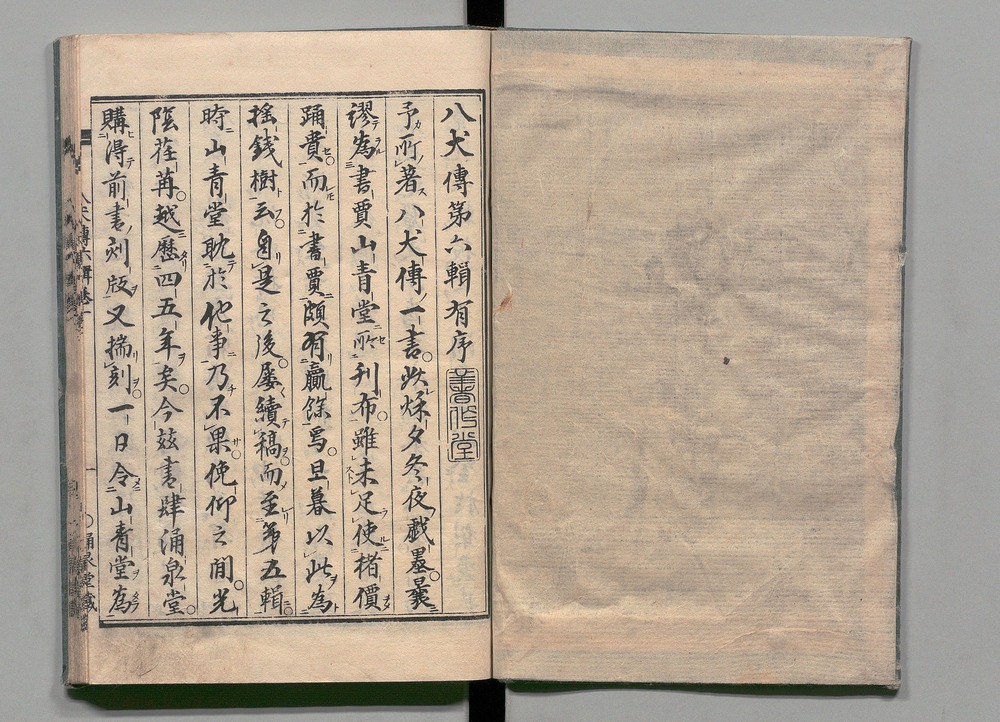 八犬傳第六輯有序
予所著八犬傳一書此穐夕冬夜戯墨曩
謬為書賈山青堂所刊布雖未足使楮價
踊貴而於書賈頗有贏餘焉旦暮以此為
揺錢樹云自是之後屡續稿而至第五輯
時山青堂耽於他事乃不果俛仰之間光
陰荏苒越歷四五年矣今茲書肆涌泉堂
購得前書刻版又揣刻一日令山青堂為
八犬傳六輯卷一
涌泉堂藏